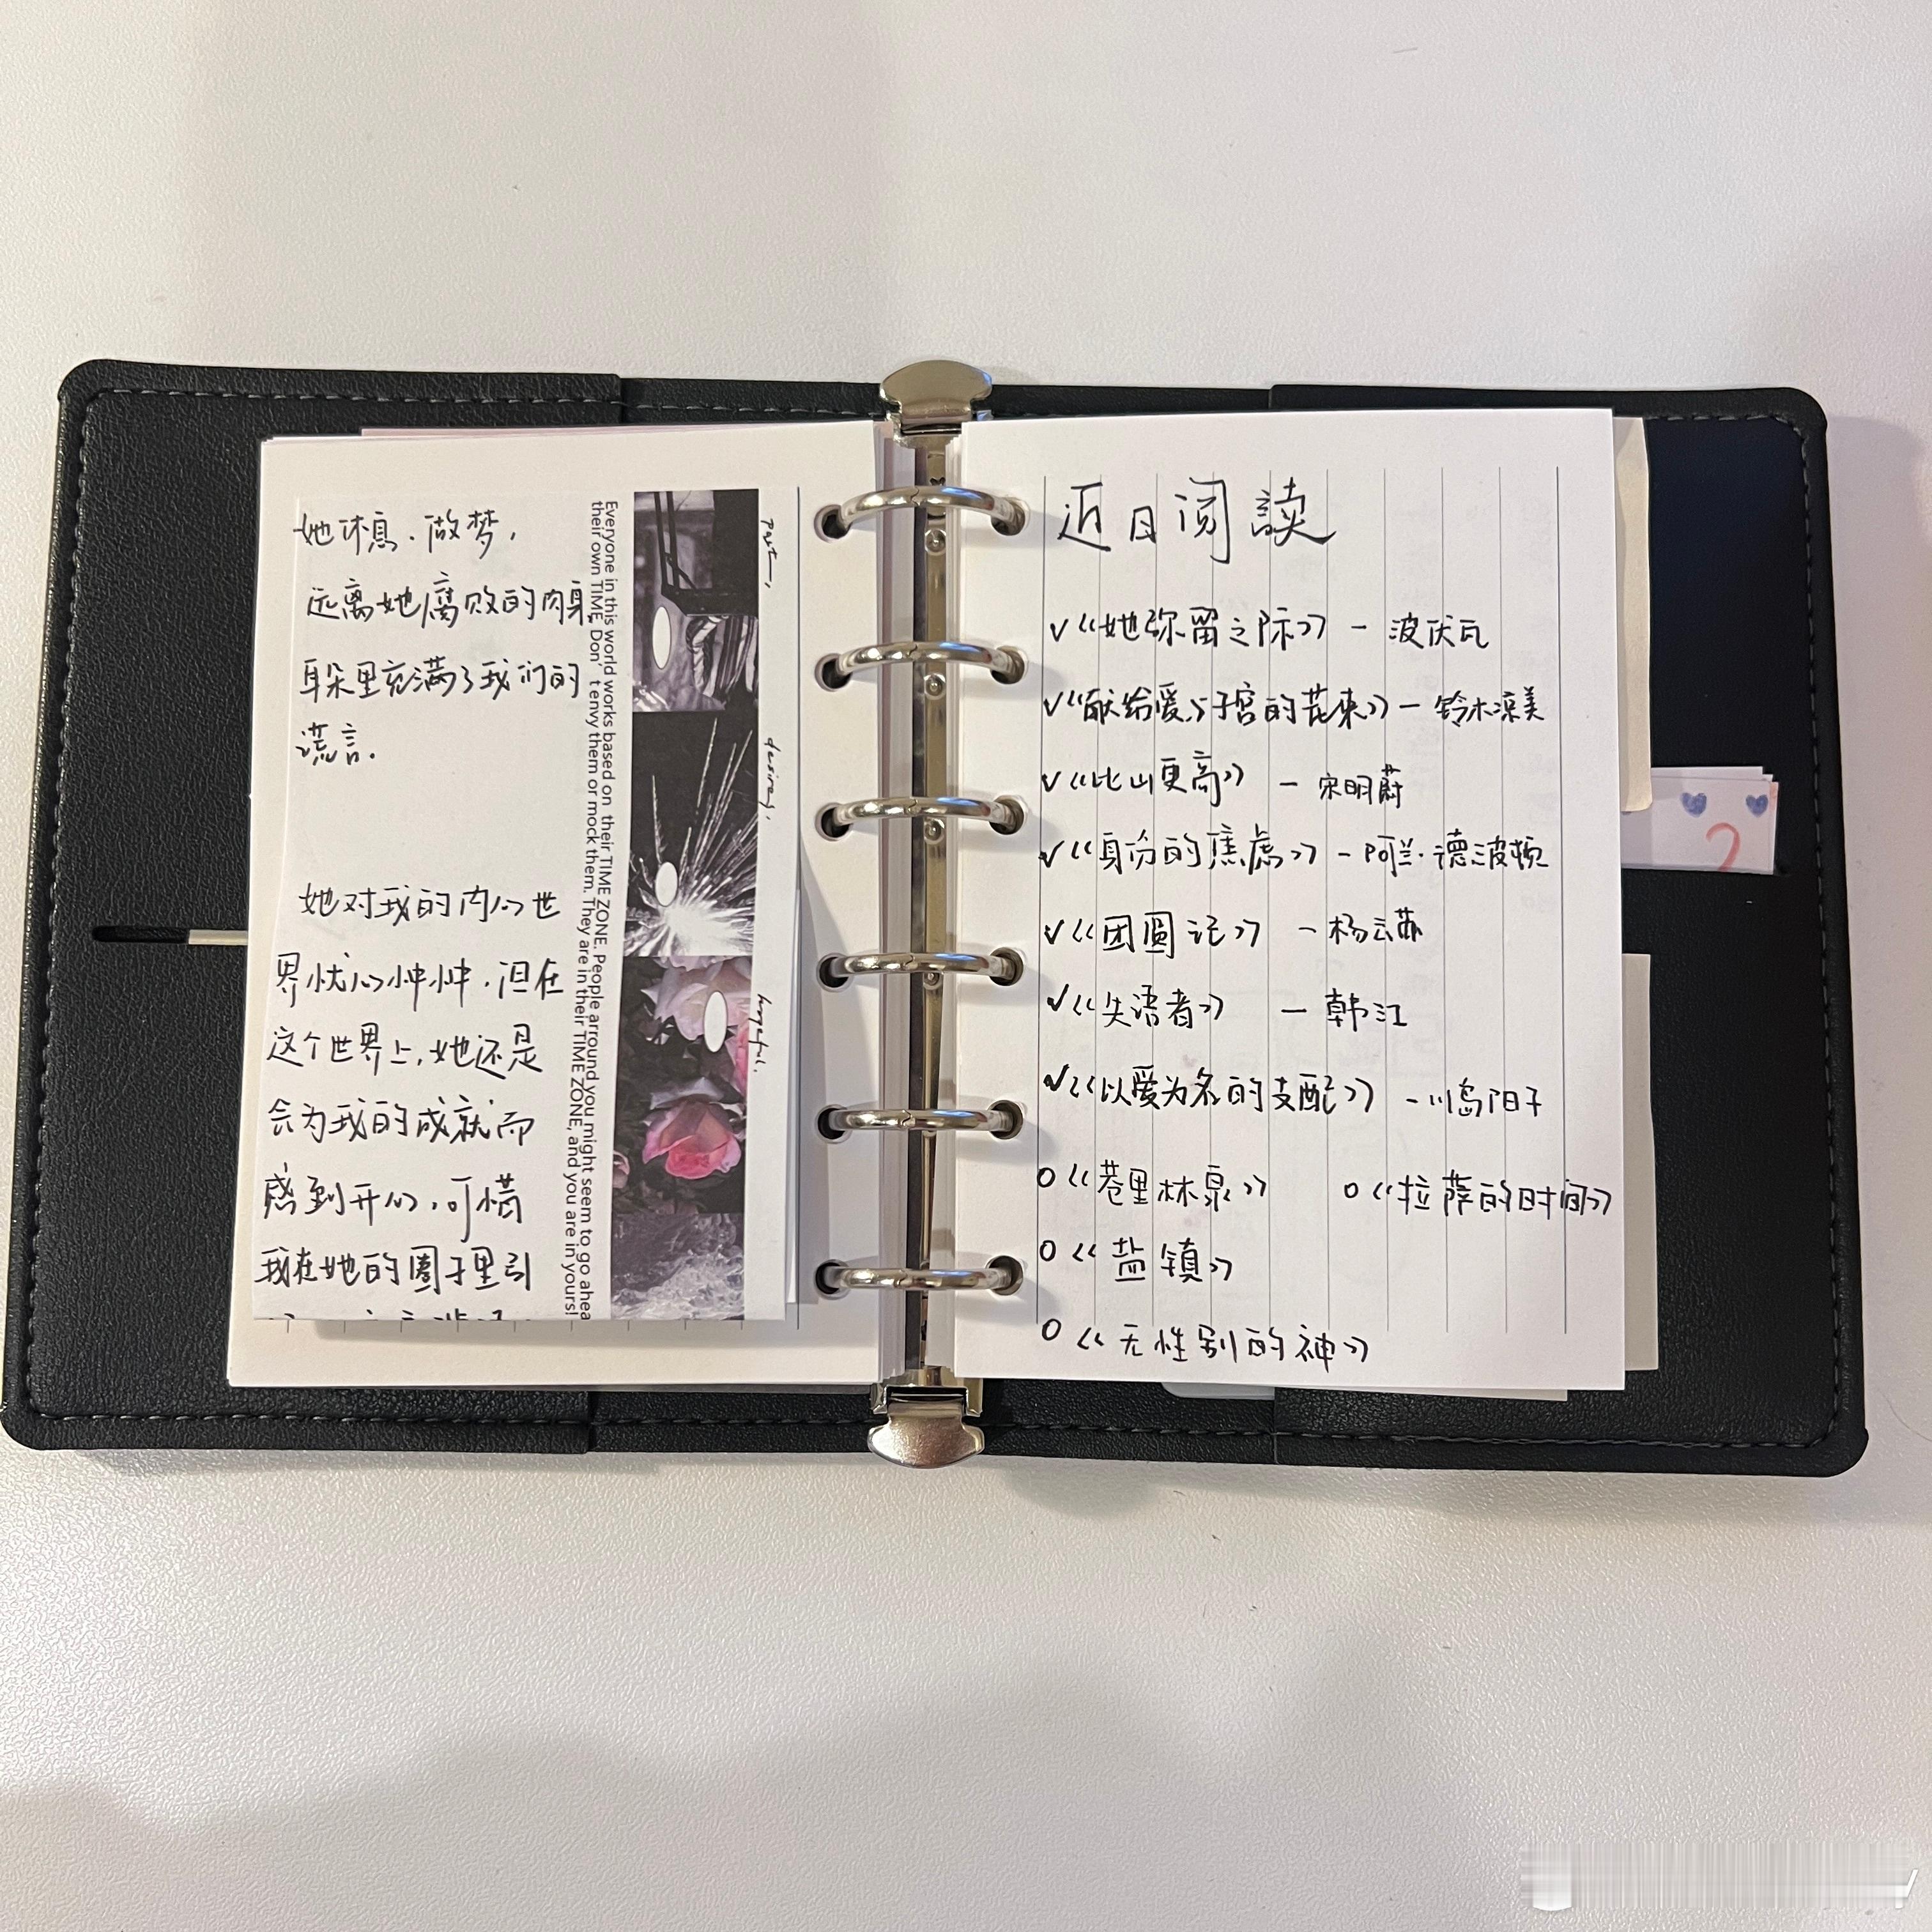 她休息、做梦，
远离她腐败的肉身，
耳朵里充满了我们的
谎言.
她对我的内心世
界忧心忡忡，但在
这个世界上，她还是
会为我的成就而
感到开心，可惜
我在她的圈子里引
Everyone in this world works based on their TIME ZONE. People arround you might seem to go ahea
their own TIME. Don't envy them or mock them. They are in their TIME ZONE, and you are in yours!
past,
desires,
hopeful,
近日阅讀
✓《她弥留之际》 — 波伏瓦
✓《献给爱与子宫的花束》— 铃木凉美
✓《比山更高》 — 宋明蔚
✓《身份的焦虑》 — 阿兰·德波顿
✓《团圆记》 — 杨云苏
✓《失语者》 — 韩江
✓《以爱为名的支配》 — 川岛阳子
○《巷里林泉》 ○《拉萨的时间》
○《盐镇》
○《无性别的神》